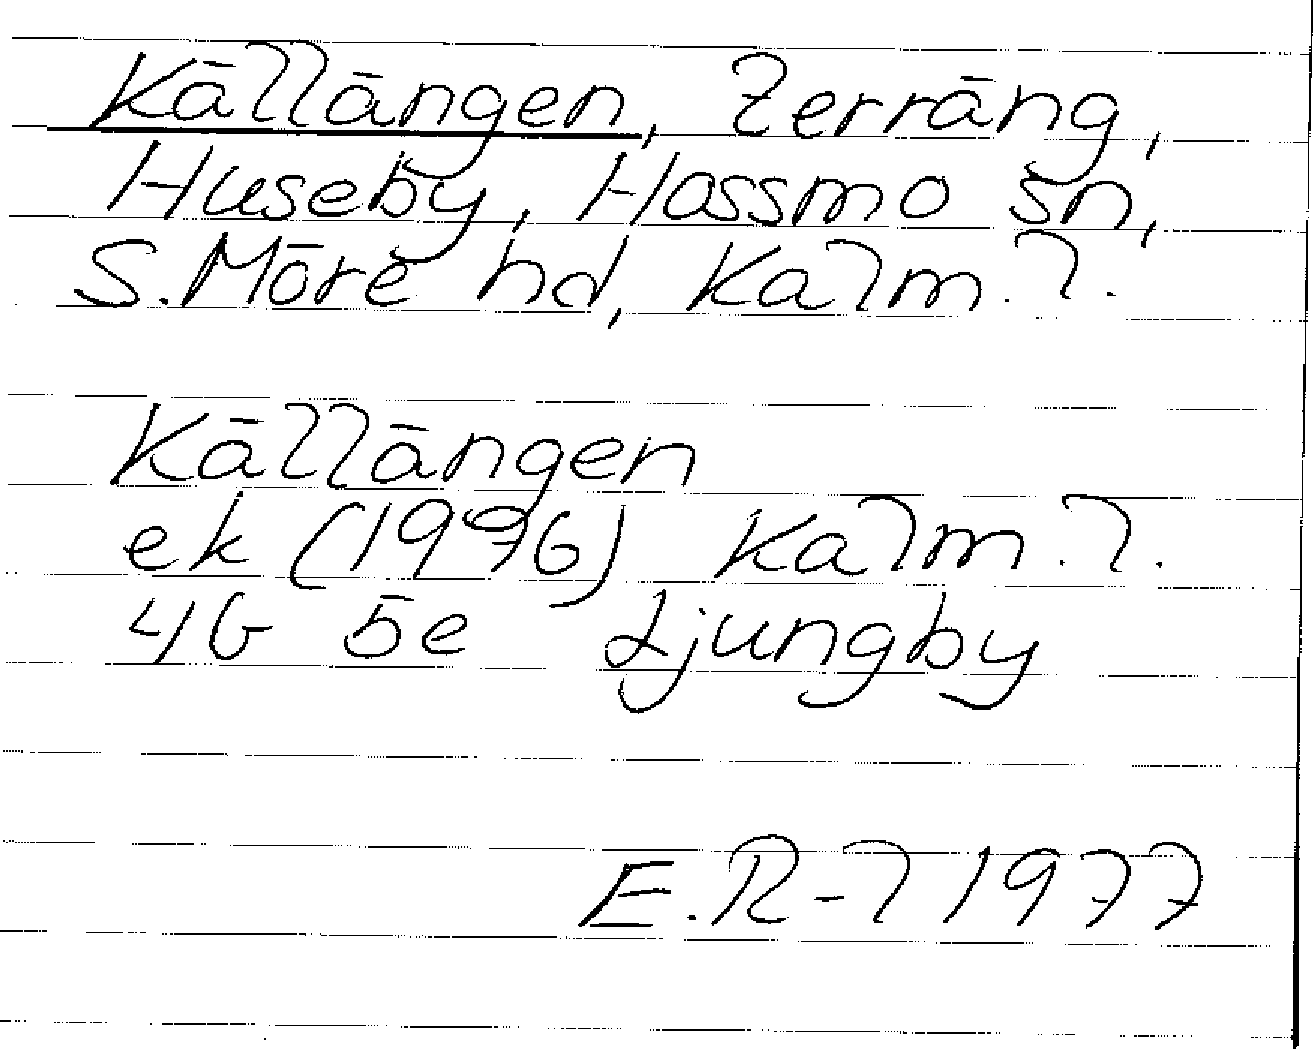 Källängen, Terräng,
Huseby, Hossmo sn,
S. Möre hd, Kalm. l.
Källängen
ek (1976) Kalm. l.
4G 5e Ljungby
E.R-l 1977